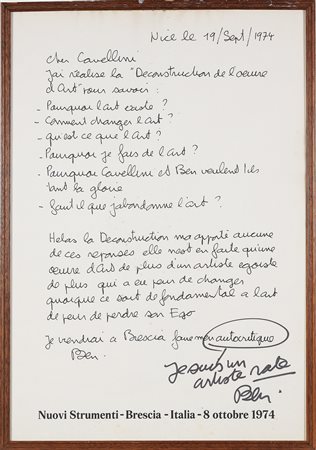 Nice le 19/Sept/1974
Cher Cavellini
J'ai réalisé la "Deconstruction de l'oeuvre
d'Art" pour savoir :
- Pourquoi l'art existe ?
- Comment changer l'art ?
- qu'est ce que l'Art ?
- Pourquoi je fais de l'Art ?
- Pourquoi Cavellini et Ben veulent ils
tant la gloire
- faut il que j'abandonne l'art ?
Helas la Deconstruction m'a apporté aucune
de ces reponses elle n'est en faite qu'une
oeuvre d'Art de plus d'un artiste egoiste
de plus qui a eu peur de changer
quoique ce soit de fondamental a l'art
de peur de perdre son Ego
Je viendrai a Brescia faire mon autocritique
Ben.
Je suis un
artiste raté
Ben.
Nuovi Strumenti - Brescia - Italia - 8 ottobre 1974